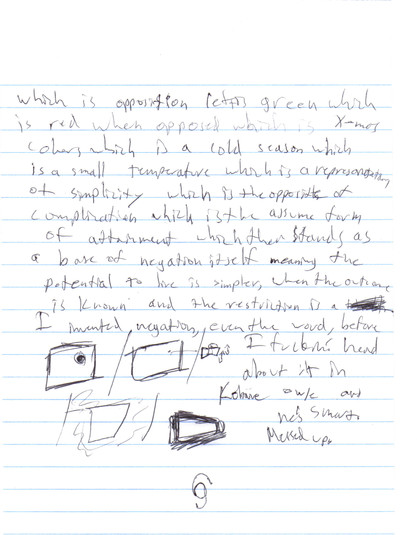 which is opposition let's green which
is red when opposed which is X-mas
colors which is a cold season which
is a small temperature which is a representation
of simplicity which is the opposite of
complication which is the assume form
of attainment which then stands as
a base of negation itself meaning the
potential to live is simpler, when the outcome
is known and the restriction is a
I invented negation, even the word, before
I fuckin' heard
about it in
and
he's smart
Messed up